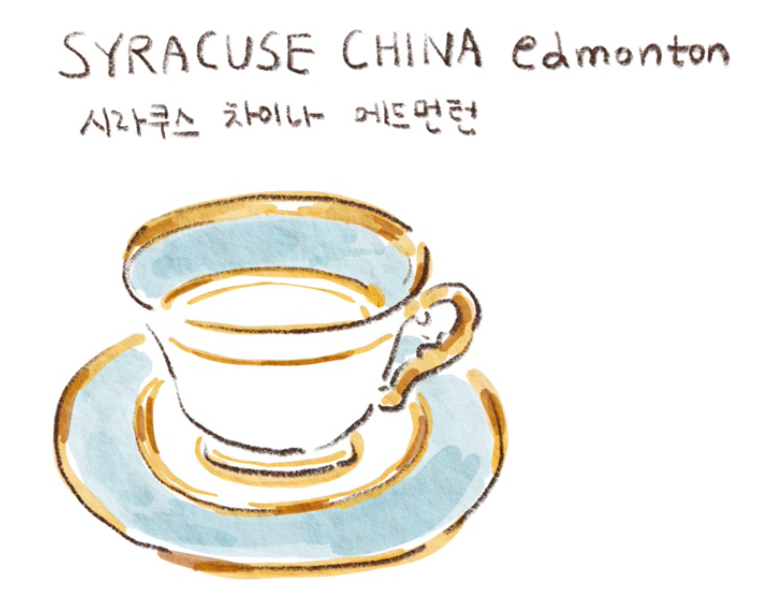 SYRACUSE CHINA edmonton
시라쿠스 차이나 에드먼턴